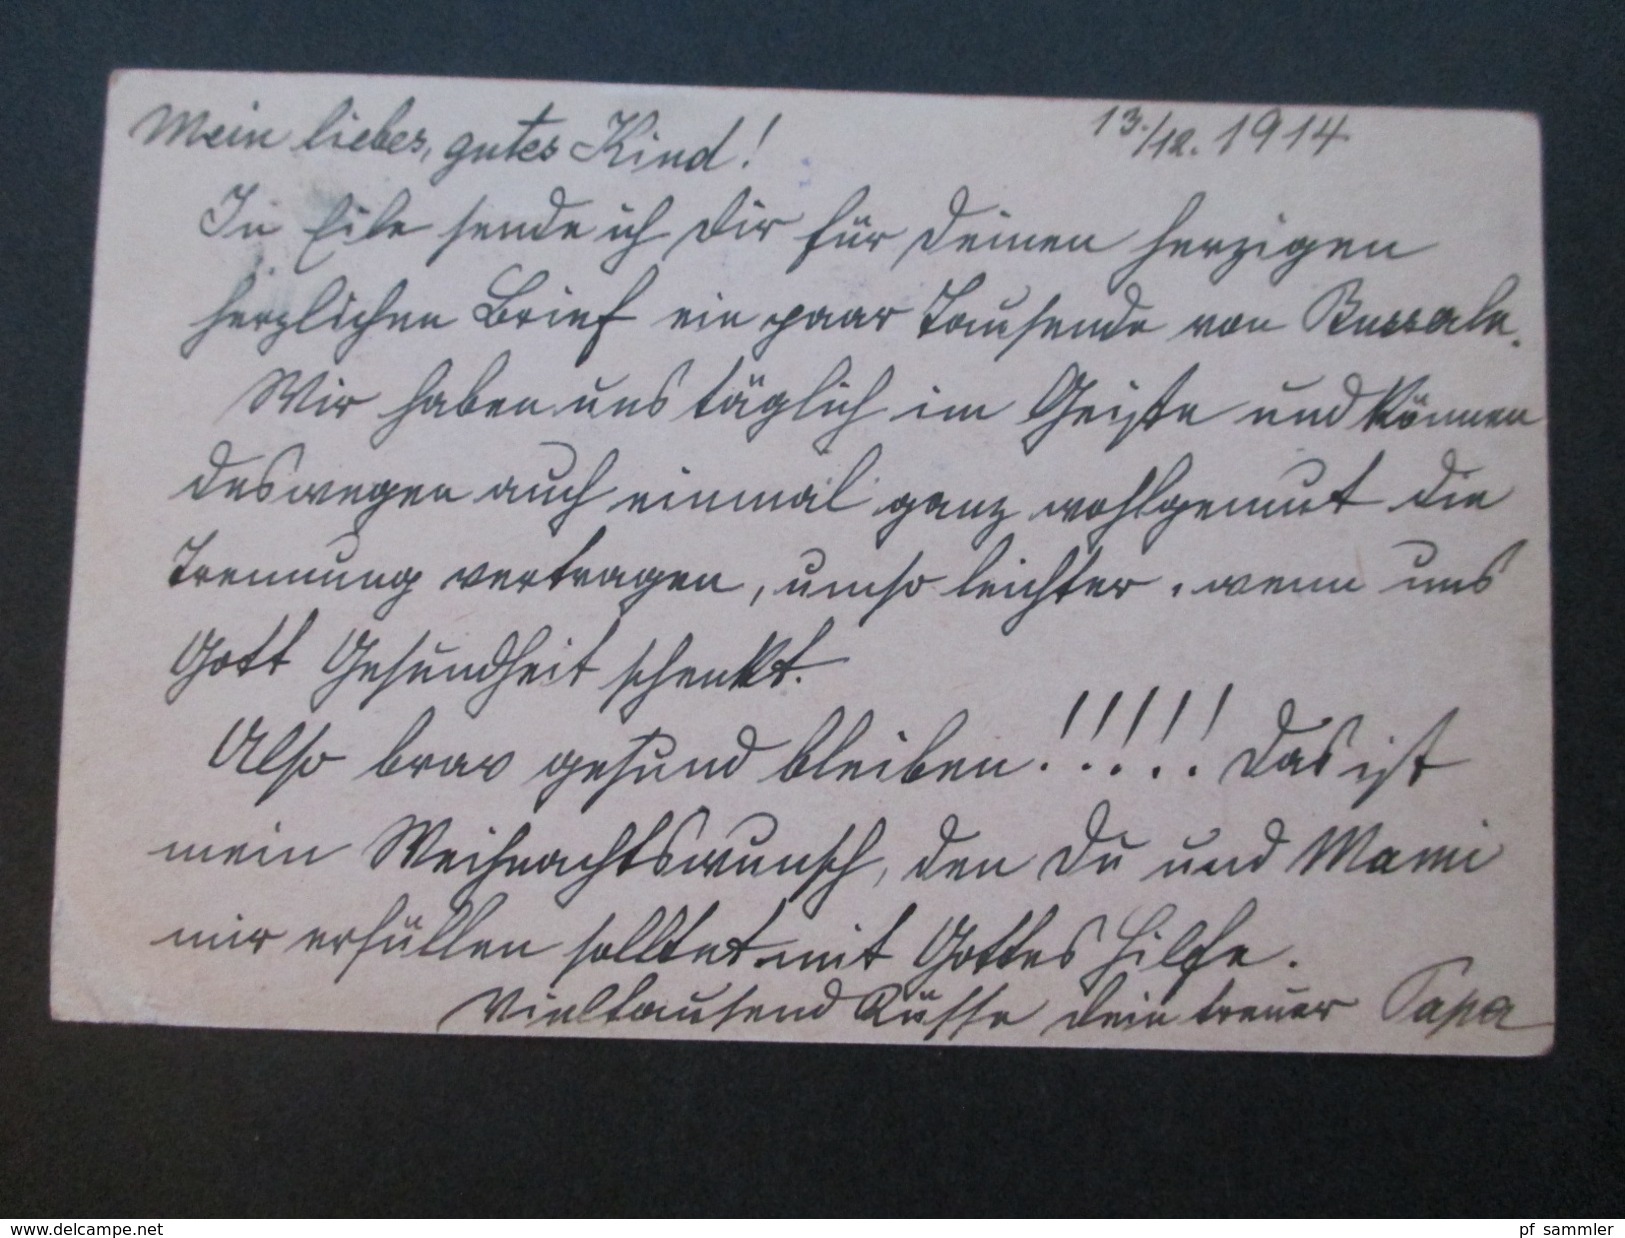 Mein liebes, gutes Kind! 13./12. 1914
In Eile sende ich Dir für Deinen herzigen
herzlichen Brief ein paar Tausende von Bussale.
Wir haben uns täglich im Geiste und können
deswegen auch einmal ganz wohlgemut die
Trennung vertragen, umso leichter, wenn uns
Gott Gesundheit schenkt.
Also brav gesund bleiben!!!!! Das ist
mein Weihnachtswunsch, den Du und Mami
mir erfüllen solltet mit Gottes Hilfe.
Vieltausend Küsse Dein treuer Papa
www.delcampe.net
pf_sammler